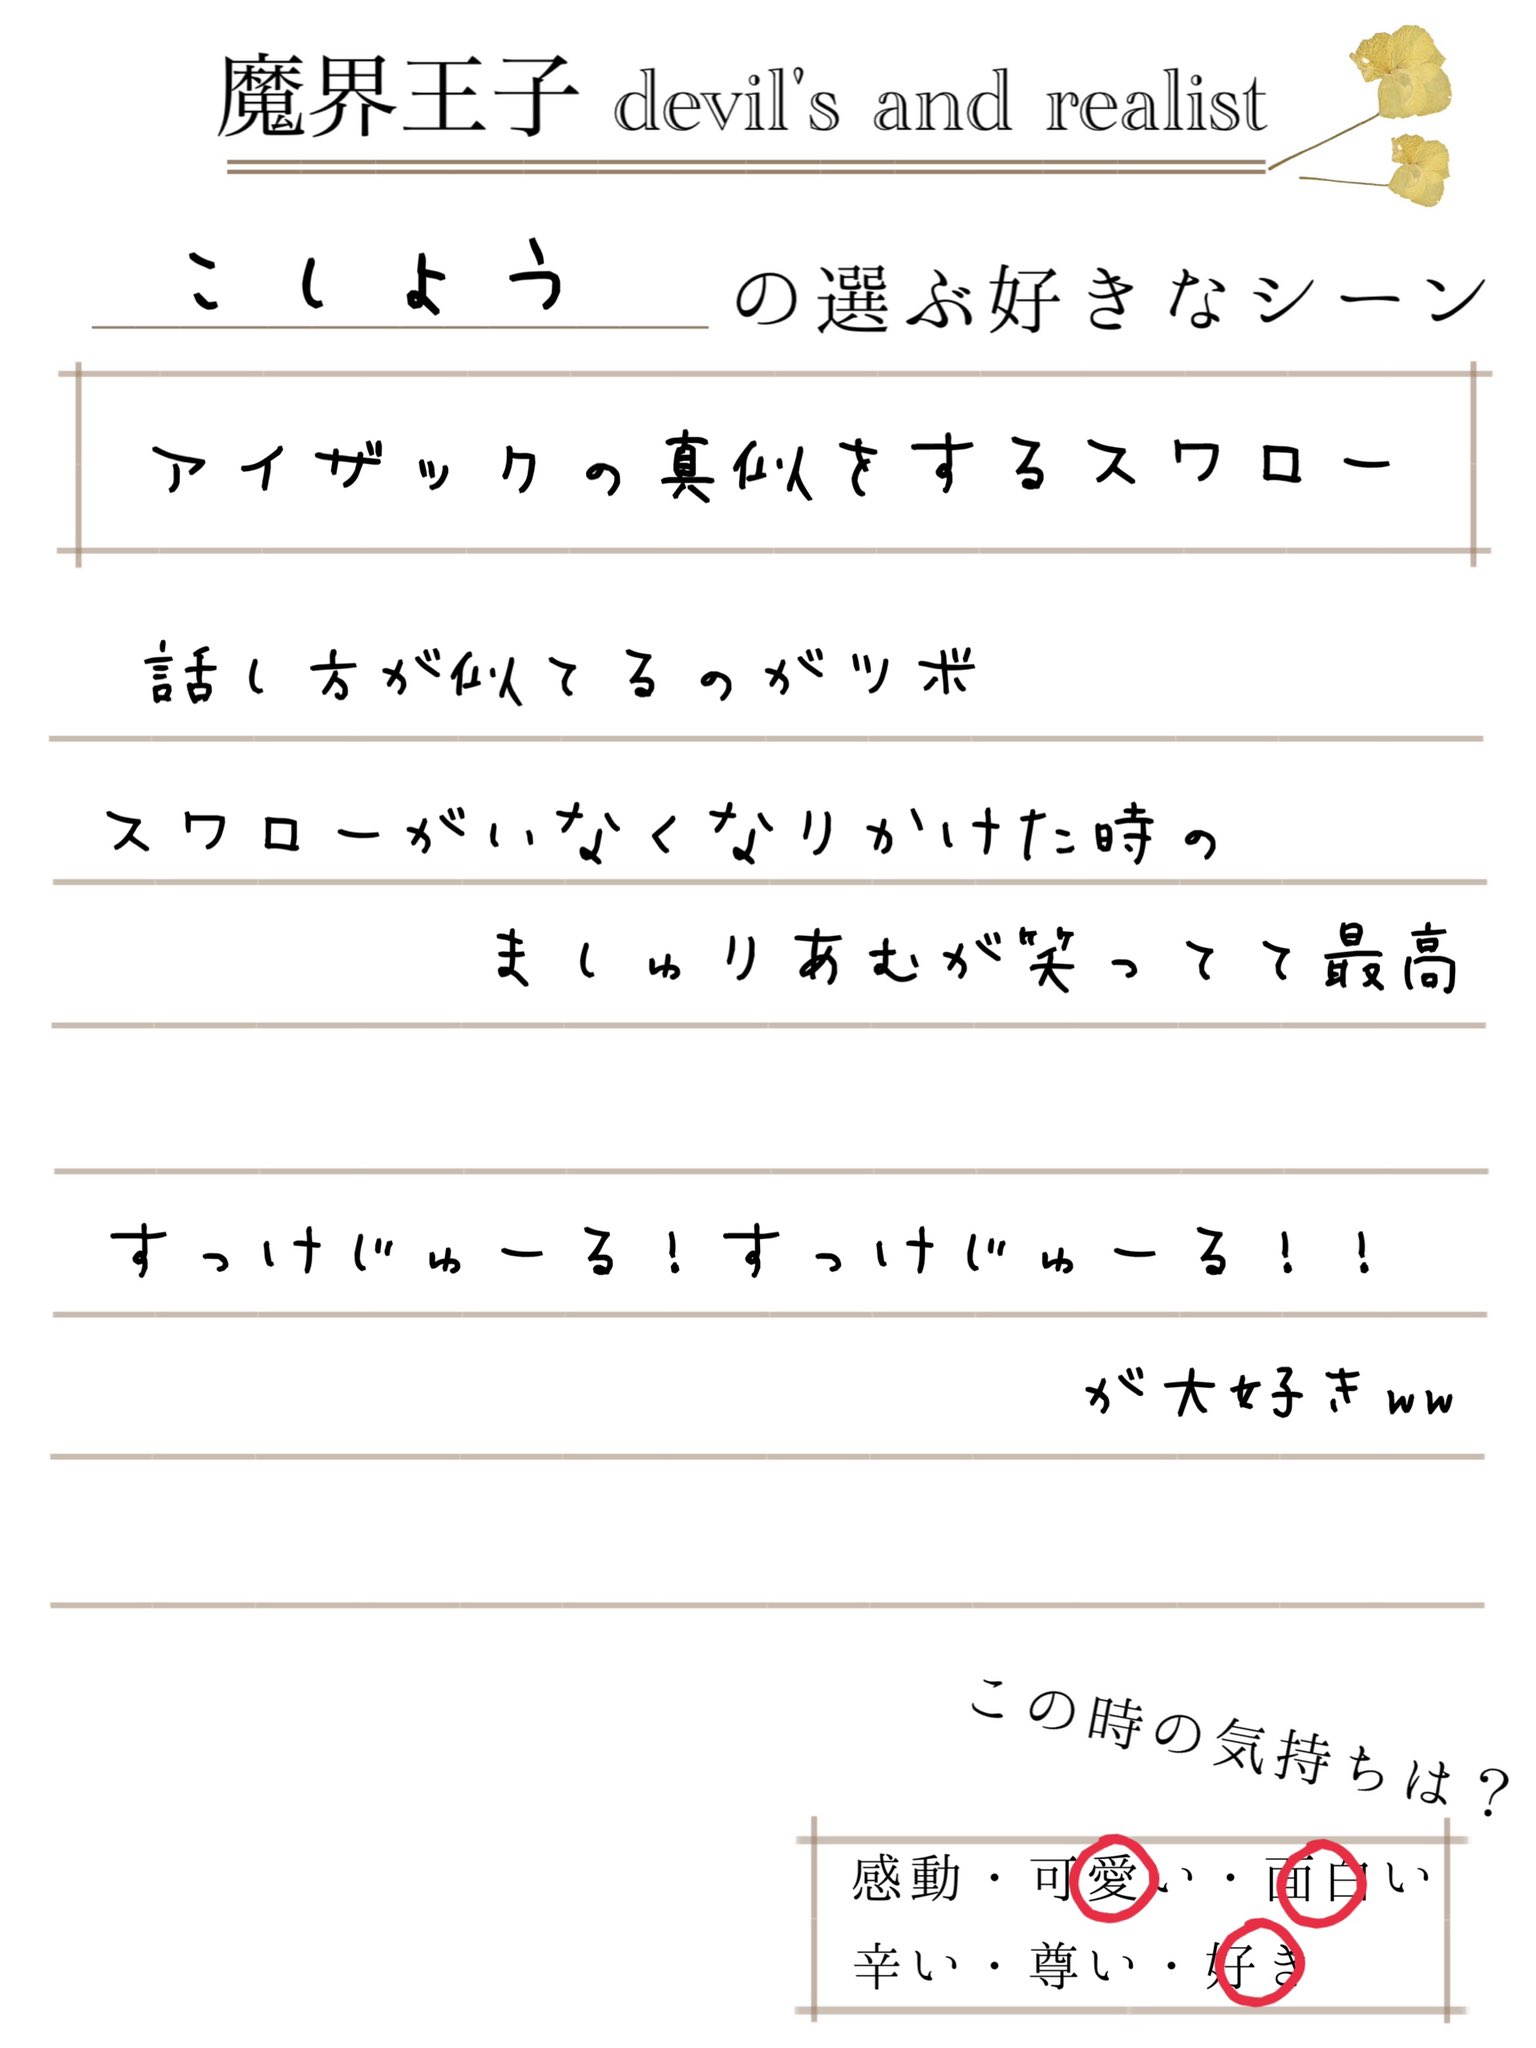 魔界王子 devil's and realist
こしょう の選ぶ好きなシーン
アイザックの真似をするスワロー
話し方が似てるのがツボ
スワローがいなくなりかけた時の
ましゅりあむが笑ってて最高
すっけじゅーる!すっけじゅーる!!
が大好きww
この時の気持ちは?
感動・可愛い・面白い
辛い・尊い・好き